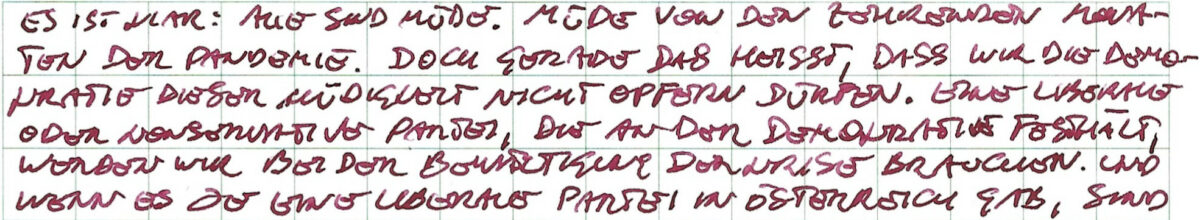 ES IST KLAR: ALLE SIND MÜDE. MÜDE VON DEN ZEHRENDEN MONA-
TEN DER PANDEMIE. DOCH GERADE DAS HEISST, DASS WIR DIE DEMO-
KRATIE DIESER MÜDIGKEIT NICHT OPFERN DÜRFEN. EINE LIBERALE
ODER KONSERVATIVE PARTEI, DIE AN DER DEMOKRATIE FESTHÄLT,
WERDEN WIR BEI DER BEWÄLTIGUNG DER KRISE BRAUCHEN. UND
WENN ES JE EINE LIBERALE PARTEI IN ÖSTERREICH GAB, SIND